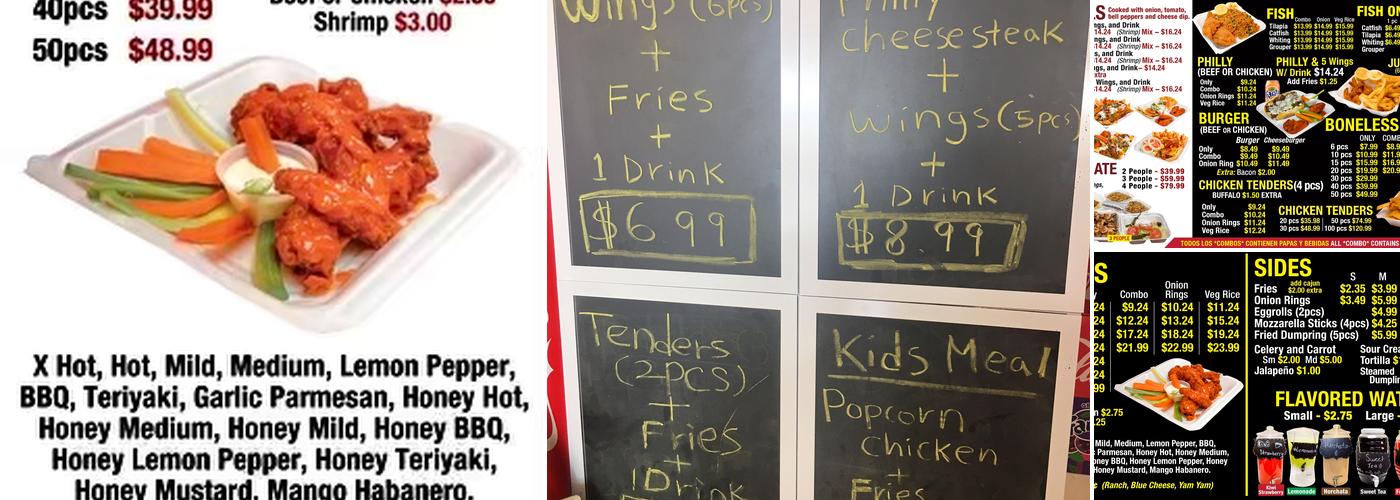 40pcs $39.99
50pcs $48.99
Shrimp $3.00
X Hot, Hot, Mild, Medium, Lemon Pepper,
BBQ, Teriyaki, Garlic Parmesan, Honey Hot,
Honey Medium, Honey Mild, Honey BBQ,
Honey Lemon Pepper, Honey Teriyaki,
Honey Mustard, Mango Habanero.
Wings (6pcs)
+
Fries
+
1 Drink
$6.99
Philly
cheesesteak
+
wings (5pcs)
+
1 Drink
$8.99
Tenders
(2PCS)
+
Fries
+
1 Drink
Kids Meal
Popcorn
chicken
+
Fries
Cooked with onion, tomato,
bell peppers and cheese dip.
ngs, and Drink
14.24 (Shrimp) Mix – $16.24
ngs, and Drink
14.24 (Shrimp) Mix – $16.24
ngs, and Drink
14.24 (Shrimp) Mix – $16.24
ngs, and Drink – $14.24
xtra
Wings, and Drink
14.24 (Shrimp) Mix – $16.24
ATE
2 People - $39.99
3 People - $59.99
4 People - $79.99
3 PEOPLE
FISH
Combo Onion Veg Rice
Tilapia $13.99 $14.99 $15.99
Catfish $13.99 $14.99 $15.99
Whiting $13.99 $14.99 $15.99
Grouper $13.99 $14.99 $15.99
FISH ON
1 pc
Catfish $6.49
Tilapia $6.4
Whiting $6.4
Grouper
PHILLY
(BEEF OR CHICKEN)
Only $9.24
Combo $10.24
Onion Rings $11.24
Veg Rice $11.24
PHILLY & 5 Wings
W/ Drink $14.24
Add Fries $1.25
JU
BURGER
(BEEF OR CHICKEN)
Burger Cheeseburger
Only $8.49 $9.49
Combo $9.49 $10.49
Onion Ring $10.49 $11.49
Extra: Bacon $2.00
BONELESS
ONLY COMB
6 pc $7.99 $8.9
10 pcs $10.99 $11.9
15 pcs $15.99 $16.9
20 pcs $19.99 $20.9
30 pcs $29.99
40 pcs $39.99
50 pcs $49.99
CHICKEN TENDERS(4 pcs)
BUFFALO $1.50 EXTRA
Only $9.24
Combo $10.24
Onion Rings $11.24
Veg Rice $12.24
CHICKEN TENDERS
20 pcs $35.98 50 pcs $74.99
30 pcs $48.99 100 pcs $120.99
TODOS LOS *COMBOS* CONTIENEN PAPAS Y BEBIDAS ALL *COMBO* CONTAINS
S
Combo Onion Rings Veg Rice
24 $9.24 $10.24 $11.24
24 $12.24 $13.24 $15.24
24 $17.24 $18.24 $19.24
24 $21.99 $22.99 $23.99
n $2.75
.25
Mild, Medium, Lemon Pepper, BBQ,
Parmesan, Honey Hot, Honey Medium,
ney BBQ, Honey Lemon Pepper, Honey
Honey Mustard, Mango Habanero.
(Ranch, Blue Cheese, Yam Yam)
SIDES
S M
add cajun
$2.00 extra
Fries $2.35 $3.99
Onion Rings $3.49 $5.99
Eggrolls (2pcs) $4.99
Mozzarella Sticks (4pcs) $4.25
Fried Dumpring (5pcs) $5.99
Celery and Carrot
Sm $2.00 Md $5.00
Jalapeño $1.00
Sour Crea
Tortilla $1
Steamed
Dumplin
FLAVORED WAT
Small - $2.75 Large -
Kiwi
Strawberry
Lemonade
Horchata
Sweet Tea